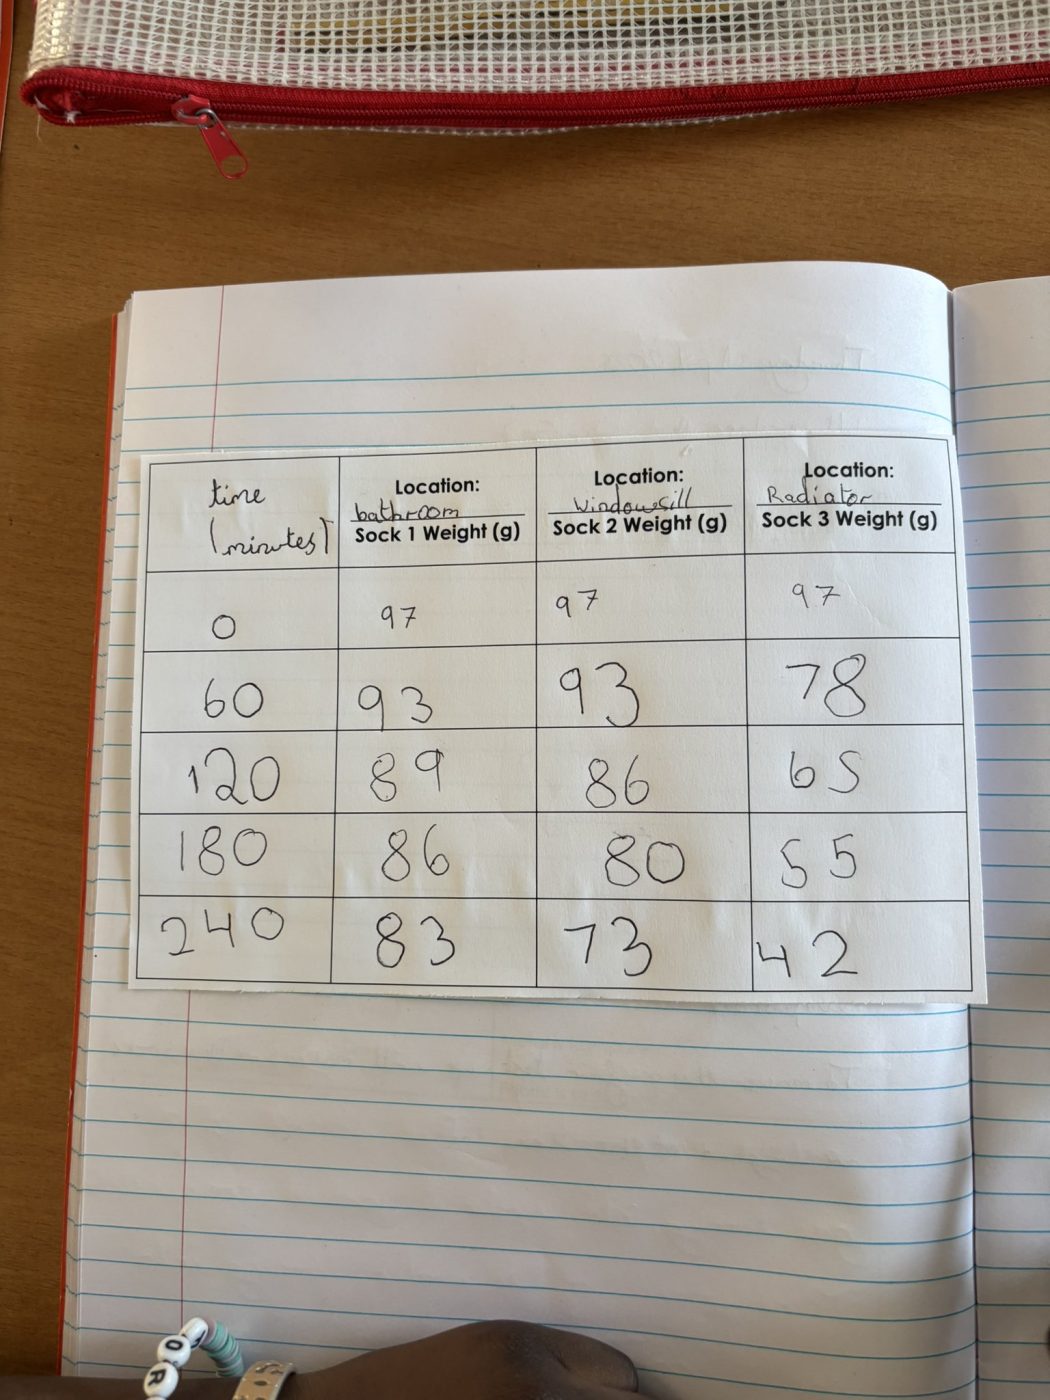 time
(minutes)
Location:
bathroom
Sock 1 Weight (g)
Location:
Windowsill
Sock 2 Weight (g)
Location:
Radiator
Sock 3 Weight (g)
0 97 97 97
60 93 93 78
120 89 86 65
180 86 80 55
240 83 73 42
O
R